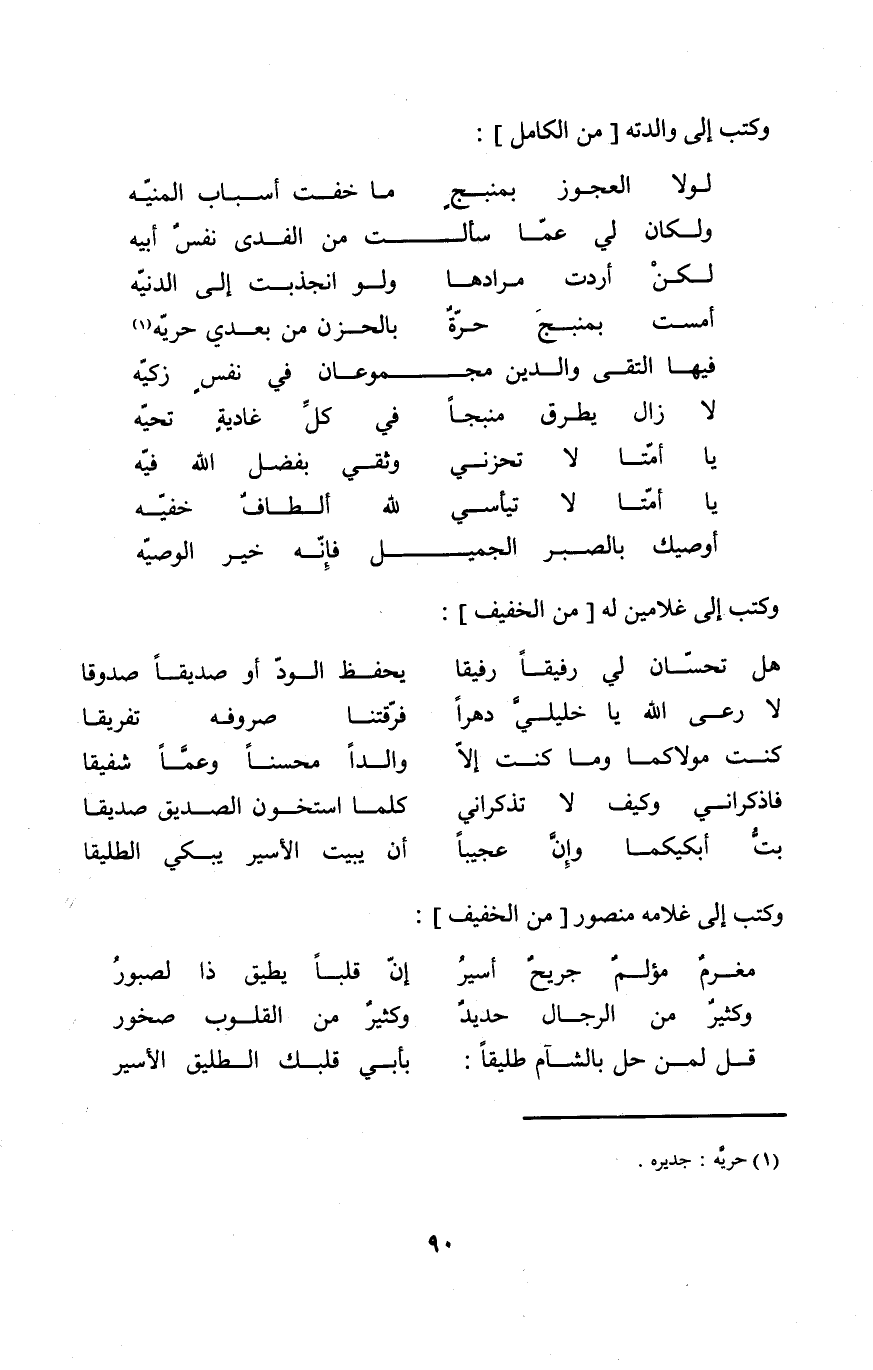 وكتب إلى والدته [ من الكامل ] :
لولا العجوز بمنبجٍ ما خفت أسباب المنيّه
ولكان لي عمّا سألت من الفدى نفسٌ أبيه
لكنْ أردت مرادها ولو انجذبت إلى الدنيّه
أمست بمنبجَ حرّةٌ بالحزن من بعدي حريّه(١)
فيها التقى والدين مجموعان في نفسٍ زكيّه
لا زال يطرق منبجاً في كلِّ غاديةٍ تحيّه
يا أمّتا لا تحزني وثقي بفضل الله فيّه
يا أمّتا لا تيأسي لله ألطافٌ خفيّه
أوصيك بالصبر الجميل فإنّه خير الوصيّه
وكتب إلى غلامين له [ من الخفيف ] :
هل تحسّان لي رفيقاً رفيقا يحفظ الودّ أو صديقاً صدوقا
لا رعى الله يا خليليَّ دهراً فرّقتنا صروفه تفريقا
كنت مولاكما وما كنت إلاّ والداً محسناً وعمَّاً شفيقا
فاذكراني وكيف لا تذكراني كلما استخون الصديق صديقا
بتُّ أبكيكما وإنَّ عجيباً أن يبيت الأسير يبكي الطليقا
وكتب إلى غلامه منصور [ من الخفيف ] :
مغرمٌ مؤلمٌ جريحٌ أسيرُ إنّ قلباً يطيق ذا لصبورُ
وكثيرٌ من الرجال حديدٌ وكثيرٌ من القلوب صخور
قل لمن حل بالشآم طليقاً : بأبي قلبك الطليق الأسير
(١) حريّه : جديره .
٩٠